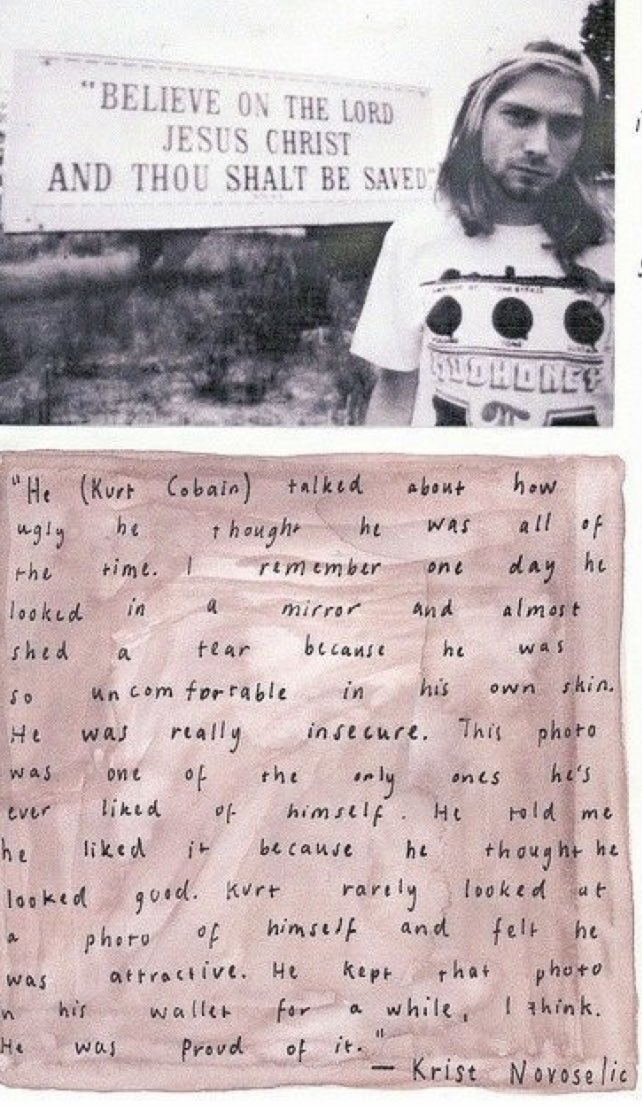 "BELIEVE ON THE LORD
JESUS CHRIST
AND THOU SHALT BE SAVED"
MUDHONEY
"He (Kurt Cobain) talked about how
ugly he thought he was all of
the time. I remember one day he
looked in a mirror and almost
shed a tear because he was
so uncomfortable in his own skin.
He was really insecure. This photo
was one of the only ones he's
ever liked of himself. He told me
he liked it because he thought he
looked good. Kurt rarely looked at
a photo of himself and felt he
was attractive. He kept that photo
n his wallet for a while, I think.
He was proud of it."
— Krist Novoselic